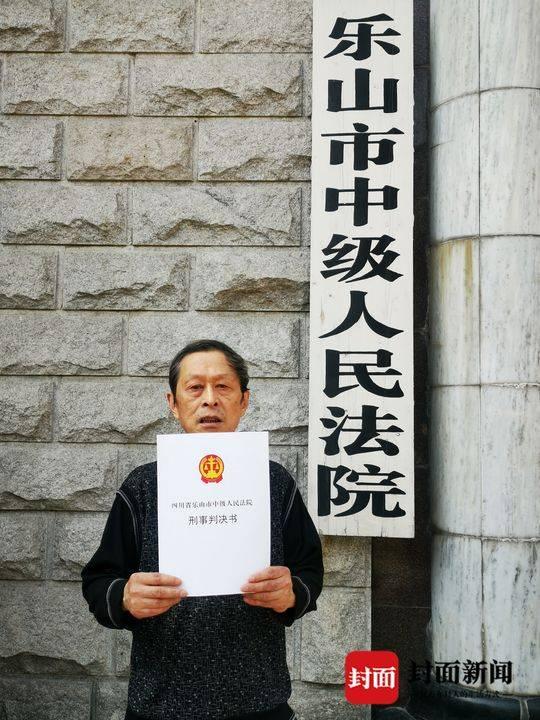 乐山市中级人民法院
四川省乐山市中级人民法院
刑事判决书
封面
封面新闻